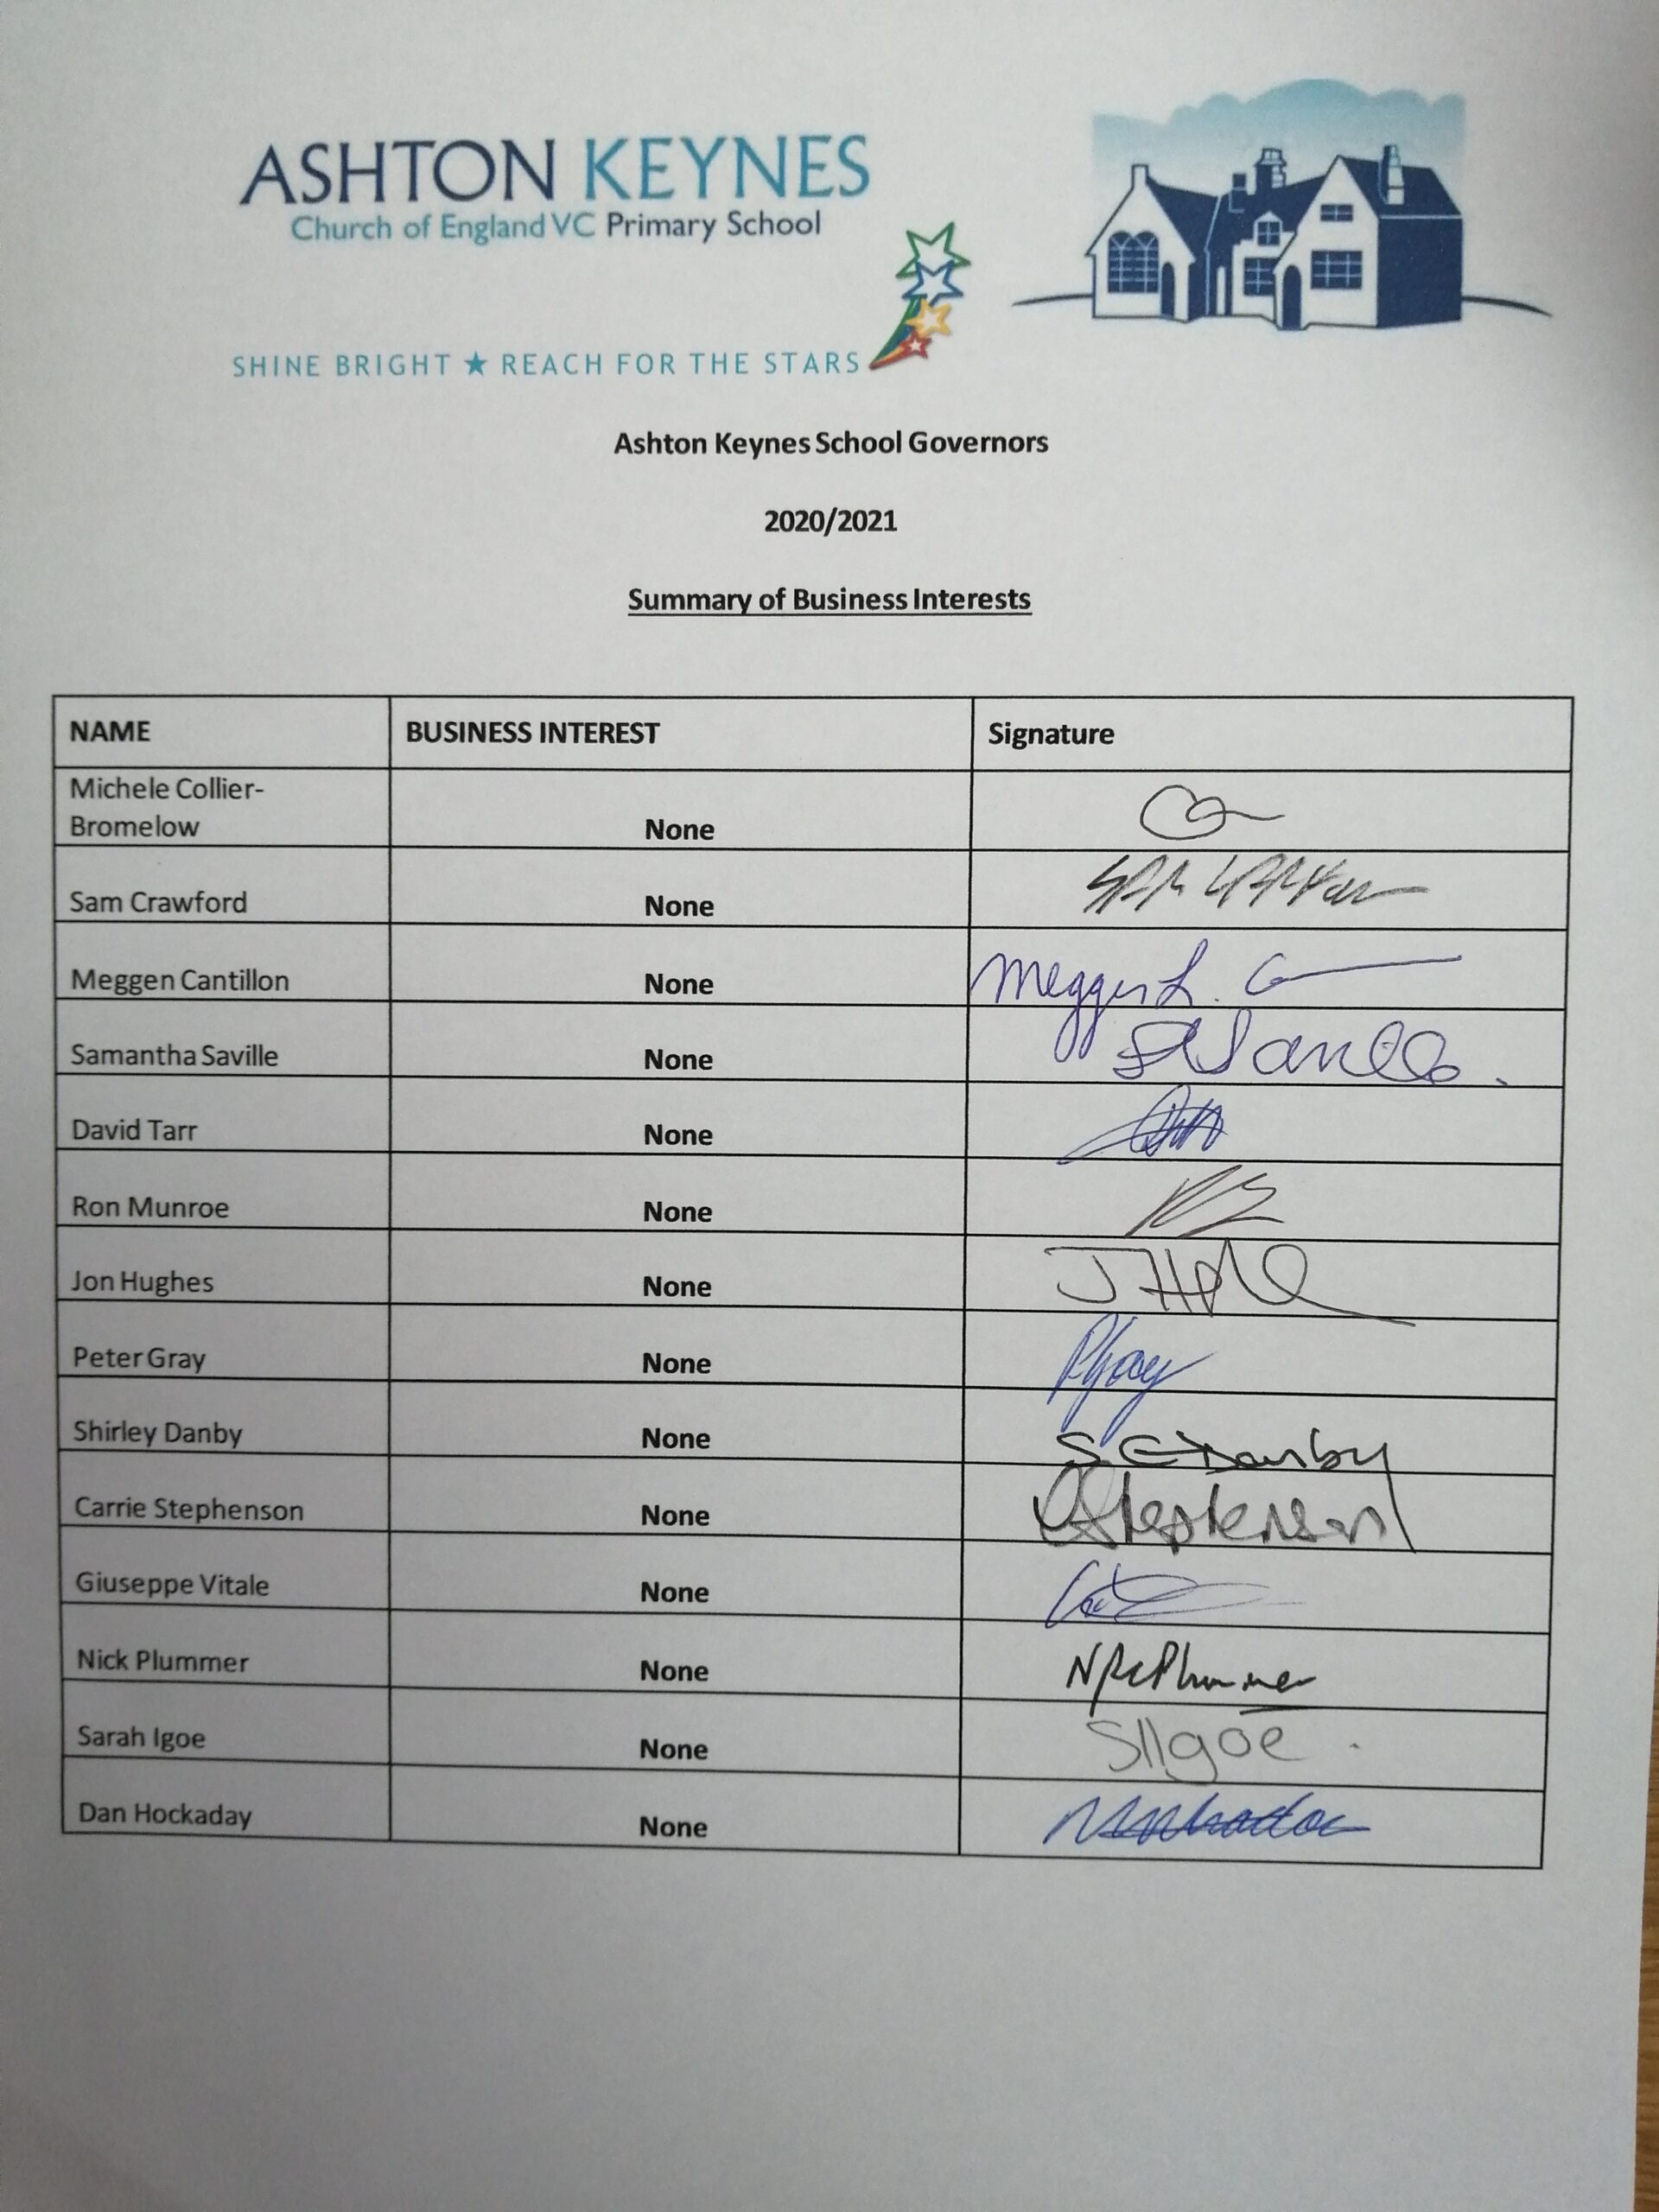 ASHTON KEYNES
Church of England VC Primary School
SHINE BRIGHT ★ REACH FOR THE STARS
Ashton Keynes School Governors
2020/2021
Summary of Business Interests
NAME BUSINESS INTEREST Signature
Michele Collier-
Bromelow None
Sam Crawford None
Meggen Cantillon None Meggen L. C
Samantha Saville None
David Tarr None
Ron Munroe None
Jon Hughes None
Peter Gray None PGray
Shirley Danby None S. C Danby
Carrie Stephenson None CStephenson
Giuseppe Vitale None
Nick Plummer None Plummer
Sarah Igoe None SIgoe
Dan Hockaday None